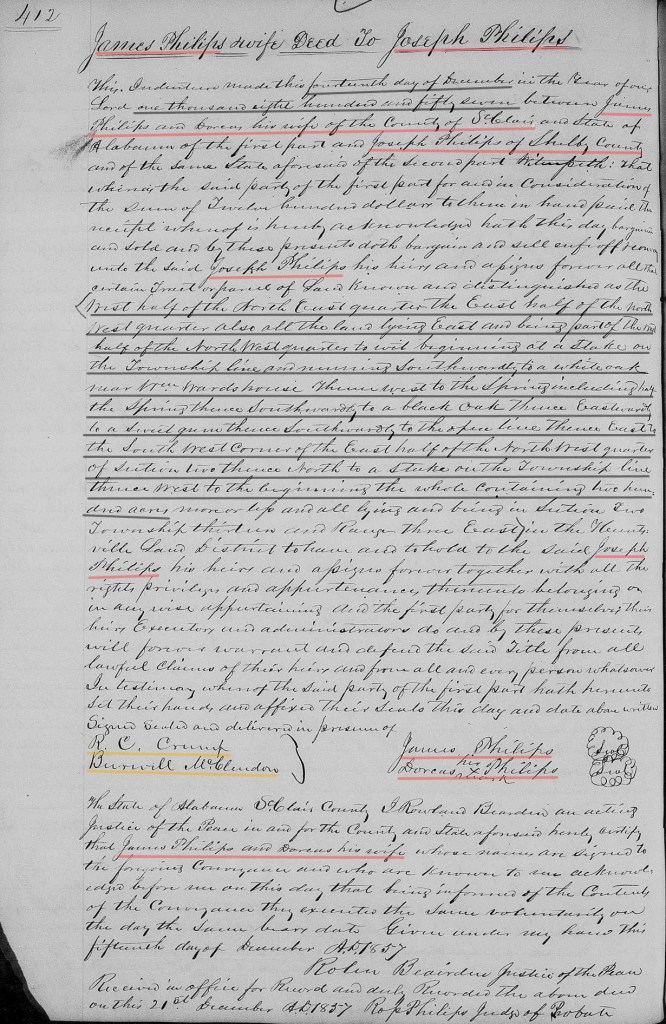 412
James Philips & wife Deed To Joseph Philips
This Indenture made this fourteenth day of December in the Year of our
Lord one thousand eight hundred and fifty seven between James
Philips and Dorcas his wife of the County of St Clair and State of
Alabama of the first part and Joseph Philips of Shelby County
and of the same State aforesaid of the second part Witnesseth: That
whereas the said party of the first part for and in Consideration of
the sum of Twelve hundred dollars to them in hand paid the
receipt whereof is hereby acknowledged hath this day bargained
and sold and by these presents doth bargain and sell
unto the said Joseph Philips his heirs and assigns forever all that
certain Tract or parcel of Land Known and distinguished as the
West half of the North East quarter the East half of the North
West quarter also all the land lying East and being part of the West
half of the North West quarter to wit beginning at a stake on
the Township line and running Southwardly to a white oak
near Wm Wards house Thence west to the Spring including half
the Spring thence Southwardly to a black Oak Thence Eastwardly
to a Sweet gum thence Southwardly to the open line Thence East to
the South West Corner of the East half of the North West quarter
of Section two thence North to a Stake on the Township line
thence West to the beginning the whole Containing two hun-
and acres more or less and all lying and being in Section Two
Township thirteen and Range three East in the Hunts-
ville Land District to have and to hold to the said Joseph
Philips his heirs and assigns forever together with all the
rights privileges and appurtenances thereunto belonging or
in any wise appurtaining And the first party for themselves their
heirs Executors and administrators do and by these presents
will forever warrant and defend the said Title from all
lawful Claims of their heirs and from all and every person whatsoever
In testimony whereof the Said party of the first part hath hereunto
Set their hands and affixed their Seals this day and date above written
Signed Sealed and delivered in presence of
R. C. Crump James Philips
Burwill McClendon Dorcas his X mark Philips
The State of Alabama St Clair County I Rowland Bearden an acting
Justice of the Peace in and for the County and State aforesaid hereby certify
that James Philips and Dorcas his wife whose names are signed to
the forgoing Conveyance and who are known to me acknowl-
edged before me on this day that being informed of the Contents
of the Conveyance they executed the Same voluntarily on
the day the Same bears date Given under my hand this
fifteenth day of December A.D. 1857
Justice of the Peace
Received in office for Record and duly Recorded the above deed
on this 21st December A.D. 1857 Philips Judge of Probate